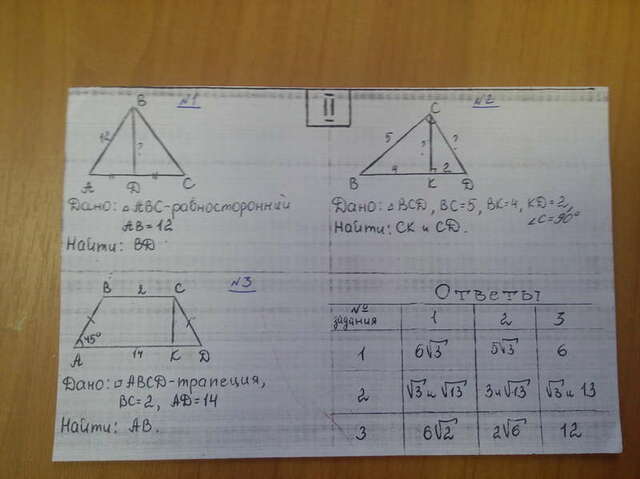 II
№1
B
12
?
A D C
Дано: △ABC-равносторонний
AB=12
Найти: BD
№2
C
5
?
?
4
2
B K D
Дано: △BCD, BC=5, BK=4, KD=2,
∠C=90°
Найти: CK и CD.
№3
B 2 C
45°
A 14 K D
Дано: □ABCD-трапеция,
BC=2, AD=14
Найти: AB.
Ответы
№ задания 1 2 3
1 6√3 5√3 6
2 √3 и √13 3 и √13 √3 и 13
3 6√2 2√6 12